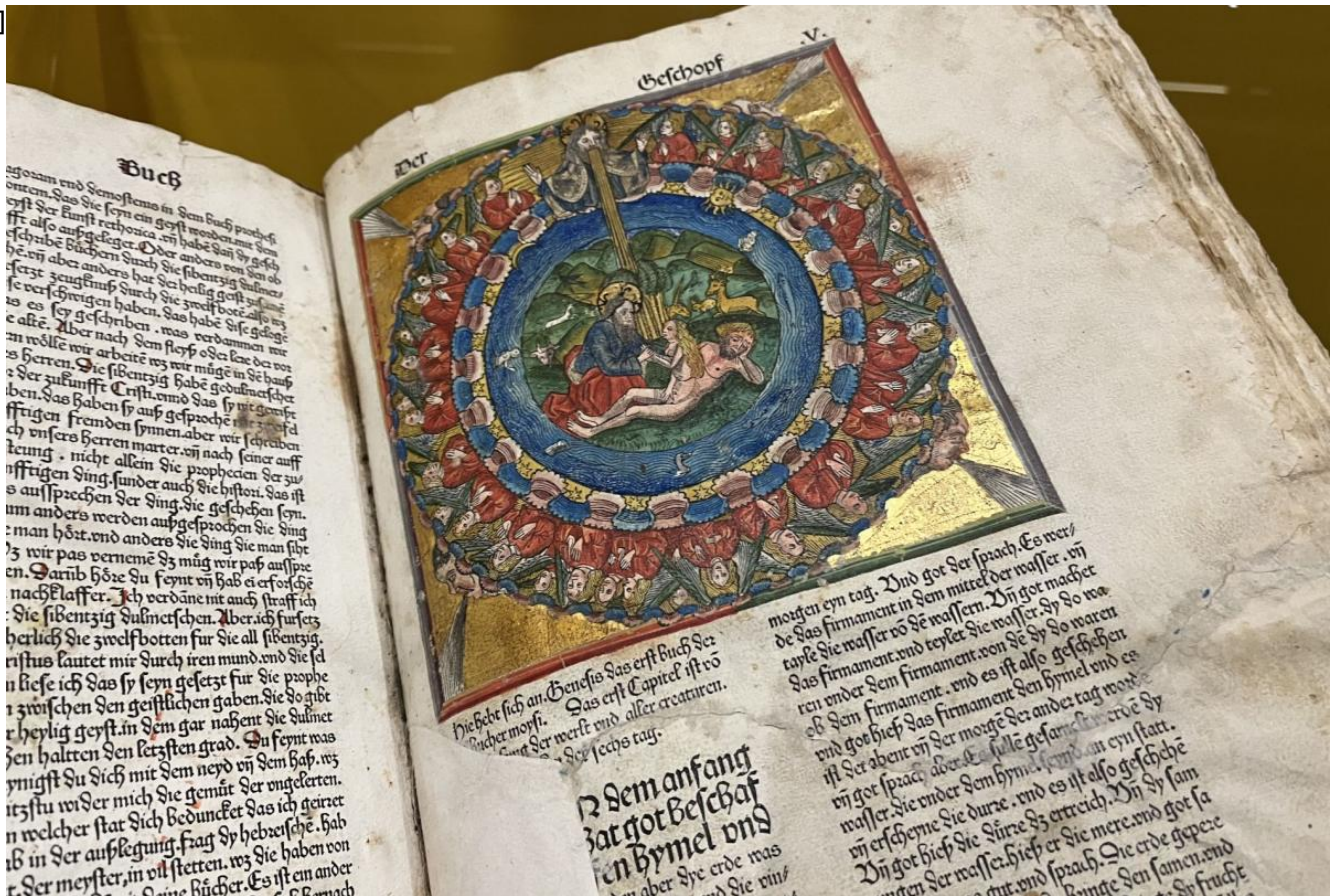 Buch
agoram vnd demostenus in dem buch prothesi
ontem. das die seyn ein geyst worden. mit dem
eyst der kunst rethorica. vn̄ habē dañ dy gesch
fft also außgeleget. Oder anders von den ob
eschribē büchern durch die sibentzig dulmet
hē. vn̄ aber anders hat der heilig geist zusamē
esetzt zeugknuß durch die zwelfbotē. also wz
se verschwigen haben. das habē dise gelogē
as es sey geschriben. was verdammen wir
e altē. Aber nach dem fleyß oder lere der vor
an wölle wir arbeitē wz wir mügē in dē hauß
s herren. Die sibentzig habē gedulmetschet
r der zukunfft Cristi. vnnd das sy nit gewißt
ben. das haben sy auß gesprochē mit
fftigen fremden synnen. aber wir schreiben
ch vnsers herren marter. vn̄ nach seiner auff
teung. nicht allein die prophecien der zu
nfftigen ding. sunder auch die histori. das ist
s aussprechen der ding. die geschehen seyn.
um anders werden außgesprochen die ding
e man hört. vnd anders die ding die man siht
Dz wir pas vernemē dz müg wir paß ausspre
en. Darūb höre du feynt vn̄ hab ei erforschē
nachklaffer. Ich verdāne nit auch straff ich
t die sibentzig dulmetschen. Aber ich fursetz
herlich die zwelfbotten fur die all sibentzig.
ristus lautet mir durch iren mund. vnd die sel
n liese ich das sy seyn gesetzt fur die prophe
n zwischen den geistlichen gaben. die do gibt
r heylig geyst. in dem gar nahent die dulmet
hen haltten den letzsten grad. Du feynt was
ynigst du dich mit dem neyd vn̄ dem haß. wz
itzstu wider mich die gemüt der vngelerten.
n welcher stat dich beduncket das ich geirret
ab in der außlegung. frag dy hebreische. hab
t. der meyster, in vil stetten. wz die haben von
deine bücher. Es ist ein ander
hernach
Der Geschopf .V.
hie hebt sich an. Genesis das erst buch der
bucher moysi. Das erst Capitel ist vō
der werlt vnd aller creaturen.
der sechs tag.
N dem anfang
hat got beschaf
en hymel vnd
aber dye erde was
vnd die vin⸗
morgen eyn tag. Vnd got der sprach. Es wer⸗
de das firmament in dem mittel der wasser. vn̄
tayle die wasser vō dē wassern. Vn̄ got machet
das firmament. vnd teylet die wasser. dy do wa
ren vnder dem firmament. von dē dy do waren
ob dem firmament. vnd es ist also geschehen
vnd got hieß das firmament den hymel vnd es
ist der abent vn̄ der morgē der ander tag worde
vn̄ got sprach aber. Es sullē gesamelt werdē dy
wasser. die vnder dem hymel seynd. an eyn statt.
vn̄ erscheyne die durre. vnd es ist also geschehē
Vn̄ got hieß die dürre. dz ertreich. Vn̄ dy sam
ungen der wasser. hieß er die mere. vnd got sa
gut. vnd sprach. Die erde gepere
den samen. vnd
frucht